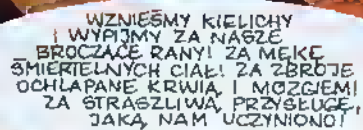 WZNIEŚMY KIELICHY
I WYPIJMY ZA NASZE
BROCZĄCE RANY! ZA MĘKĘ
ŚMIERTELNYCH CIAŁ! ZA ZBROJE
OCHLAPANE KRWIĄ I MÓZGIEM!
ZA STRASZLIWĄ PRZYSŁUGĘ,
JAKĄ NAM UCZYNIONO!